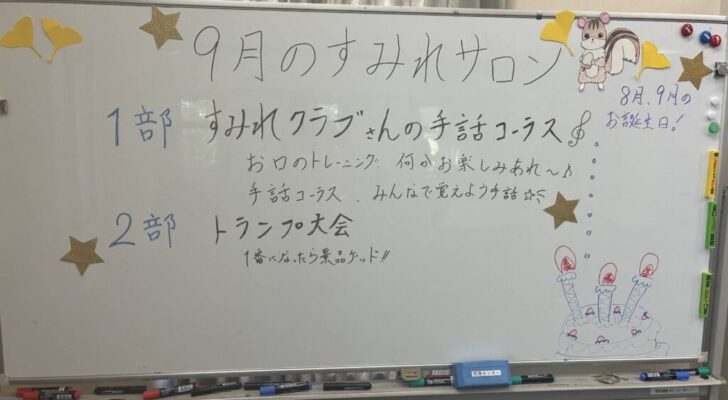 9月のすみれサロン
8月、9月の
お誕生日!
1部 すみれクラブさんの手話コーラス
お口のトレーニング、何かお楽しみあれ〜♪
手話コーラス、みんなで覚えよう手話☆
2部 トランプ大会
1番になったら景品ゲッド!!